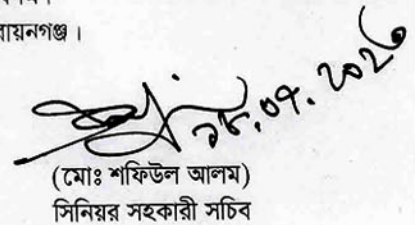 রায়নগঞ্জ।
১৮.০৭.২০২৩
(মোঃ শফিউল আলম)
সিনিয়র সহকারী সচিব